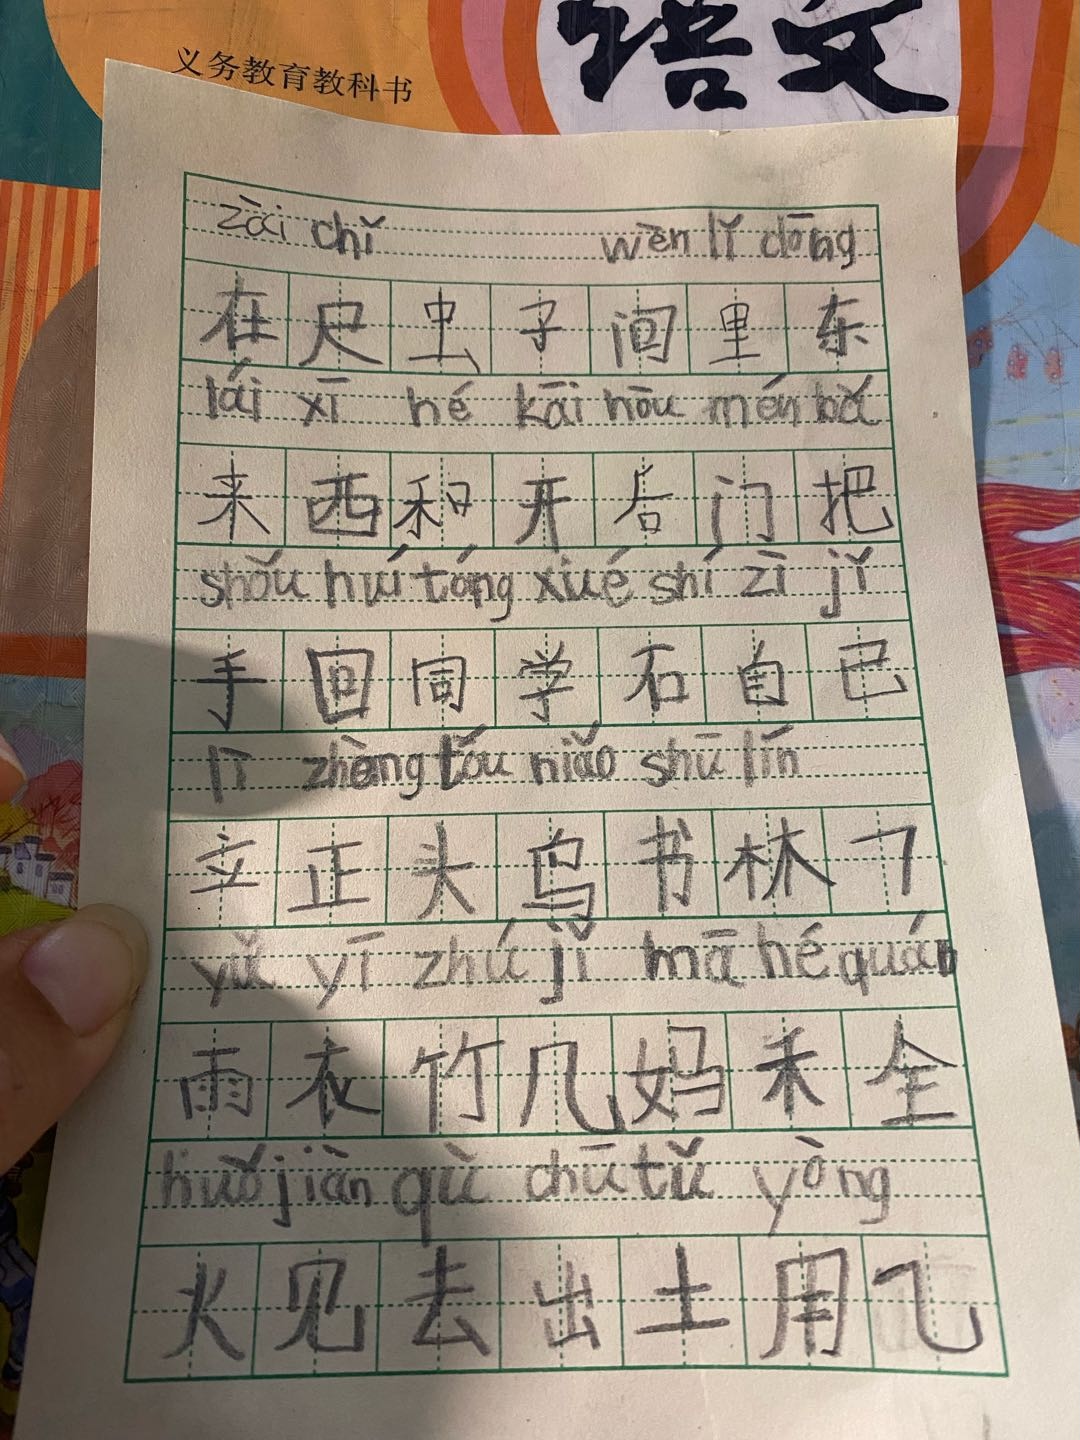 语文
义务教育教科书
zài chǐ wèn lǐ dōng
在尺虫子问里东
lái xī hé kāi hòu mén bǎ
来西和开后门把
shǒu huí tóng xiué shí zì jǐ
手回同学石自己
lì zhèng tóu niǎo shū lín
立正头鸟书林㇕
yǔ yī zhú jǐ mā hé quán
雨衣竹几妈禾全
huǒ jiàn qù chū tǔ yòng
火见去出土用⺄